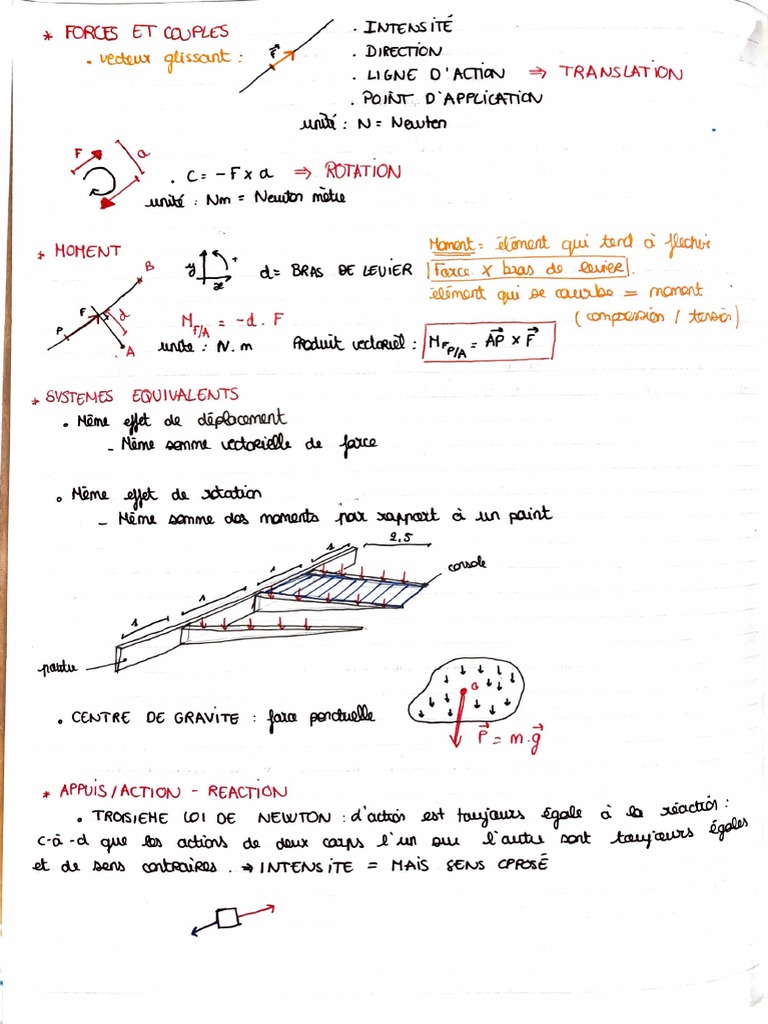 * FORCES ET COUPLES
. vecteur glissant :
F
. INTENSITÉ
. DIRECTION
. LIGNE D'ACTION ⇒ TRANSLATION
. POINT D'APPLICATION
unité : N = Newton
F a
. C = - F x a ⇒ ROTATION
unité : Nm = Newton mètre
* MOMENT
B F d P A
y x +
d = BRAS DE LEVIER
Moment = élément qui tend à flechir
Force x bras de levier.
élément qui se courbe = moment
(compression / tension)
M F/A = - d . F
unité : N. m
Produit vectoriel : M F P/A = AP x F
* SYSTEMES EQUIVALENTS
. Même effet de déplacement
- Même somme vectorielle de force
. Même effet de rotation
- Même somme des moments par rapport à un point
1 1 1 1 2,5
console
poutre
. CENTRE DE GRAVITE : force ponctuelle
G
P = m.g
* APPUIS/ACTION - REACTION
. TROISIEME LOI DE NEWTON : d'action est toujours égale à la réaction :
c-à-d que les actions de deux corps l'un sur l'autre sont toujours égales
et de sens contraires. → INTENSITE = MAIS SENS OPPOSÉ